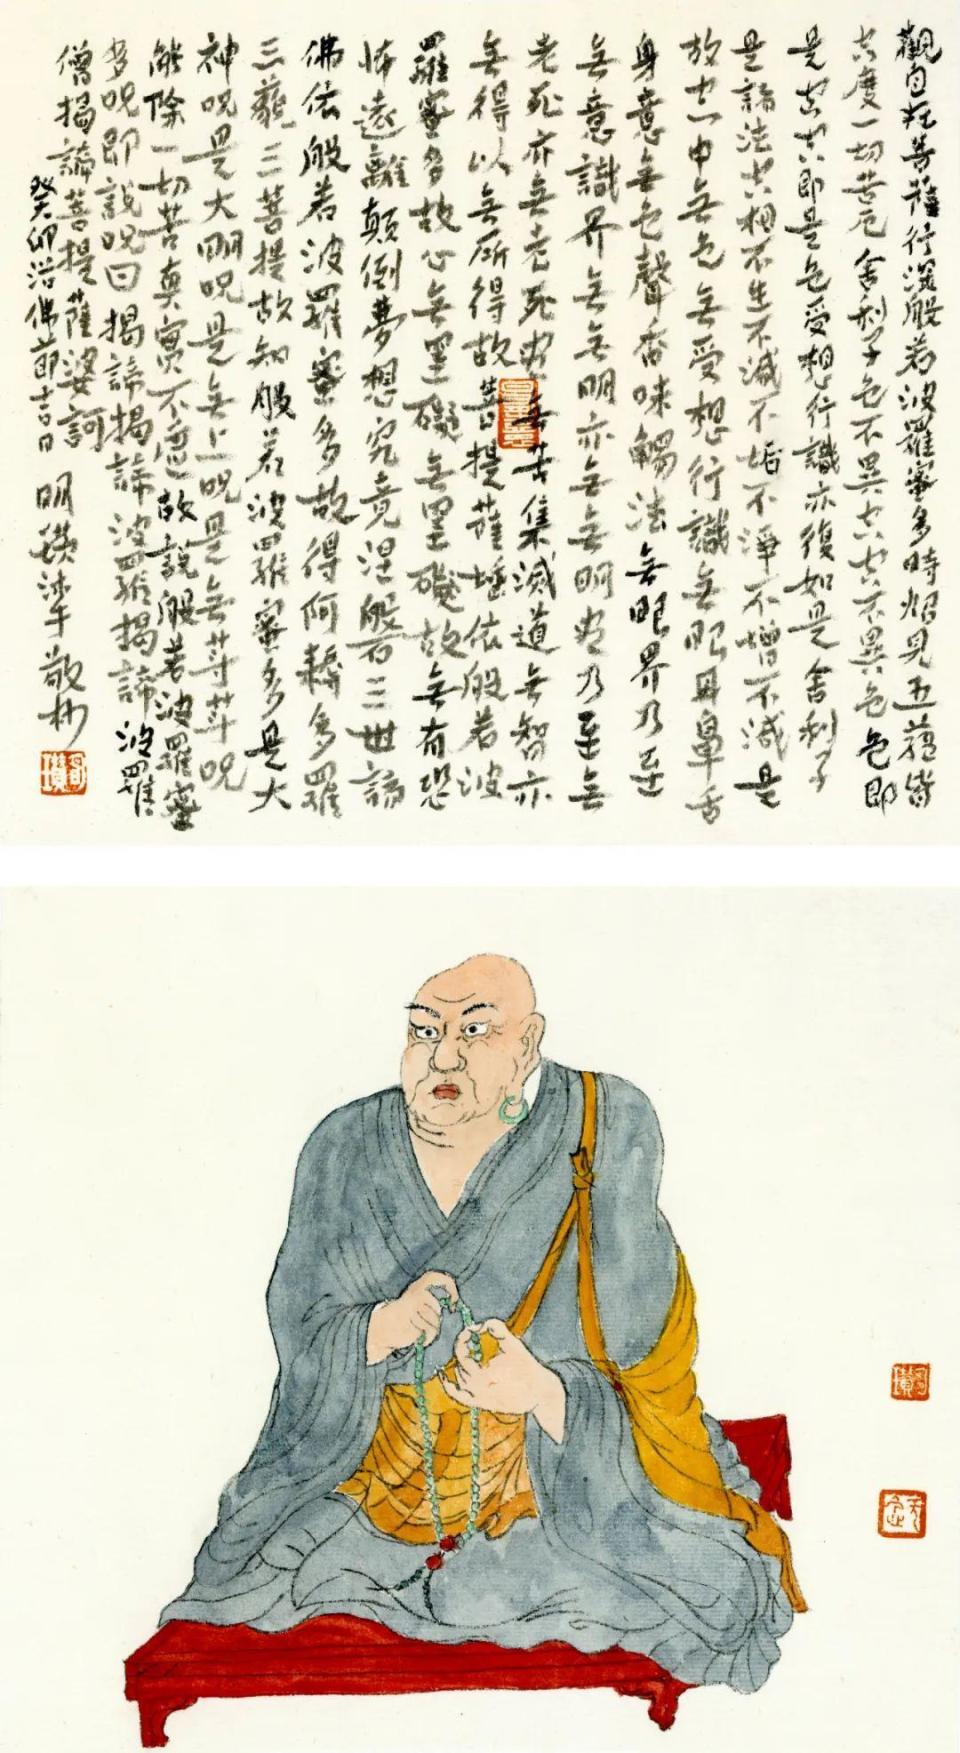 觀自在菩薩行深般若波羅蜜多時炤見五蘊皆
空度一切苦厄舍利子色不異空空不異色色即
是空空即是色受想行識亦復如是舍利子
是諸法空相不生不滅不垢不淨不增不減是
故空中無色無受想行識無眼耳鼻舌
身意無色聲香味觸法無眼界乃至
無意識界無無明亦無無明盡乃至無
老死亦無老死盡無苦集滅道無智亦
無得以無所得故菩提薩埵依般若波
羅蜜多故心無罣礙無罣礙故無有恐
怖遠離顛倒夢想究竟涅磐三世諸
佛依般若波羅蜜多故得阿耨多羅
三藐三菩提故知般若波羅蜜多是大
神呪是大明呪是無上呪是無等等呪
能除一切苦真實不虛故說般若波羅蜜
多呪即說呪曰揭諦揭諦波羅揭諦波羅
僧揭諦菩提薩婆訶
癸卯浴佛節吉日 明瓚沐手敬抄